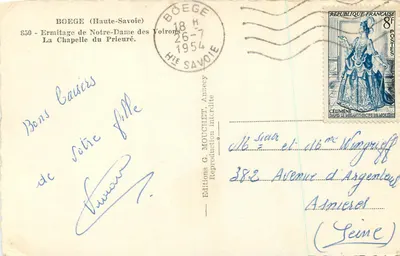 BOEGE (Haute-Savoie)
830 - Ermitage de Notre-Dame des Voirons
La Chapelle du Prieuré.
BOEGE
18 H
26-7
1954
Hte SAVOIE
RÉPUBLIQUE FRANÇAISE
8F
CÉLIMÈNE
Bons baisers
de votre fille
Editions G. MOUCHET, Annecy
Reproduction interdite
Msieur et Mme
382 Avenue d'Argenteuil
Asnieres
(Seine)